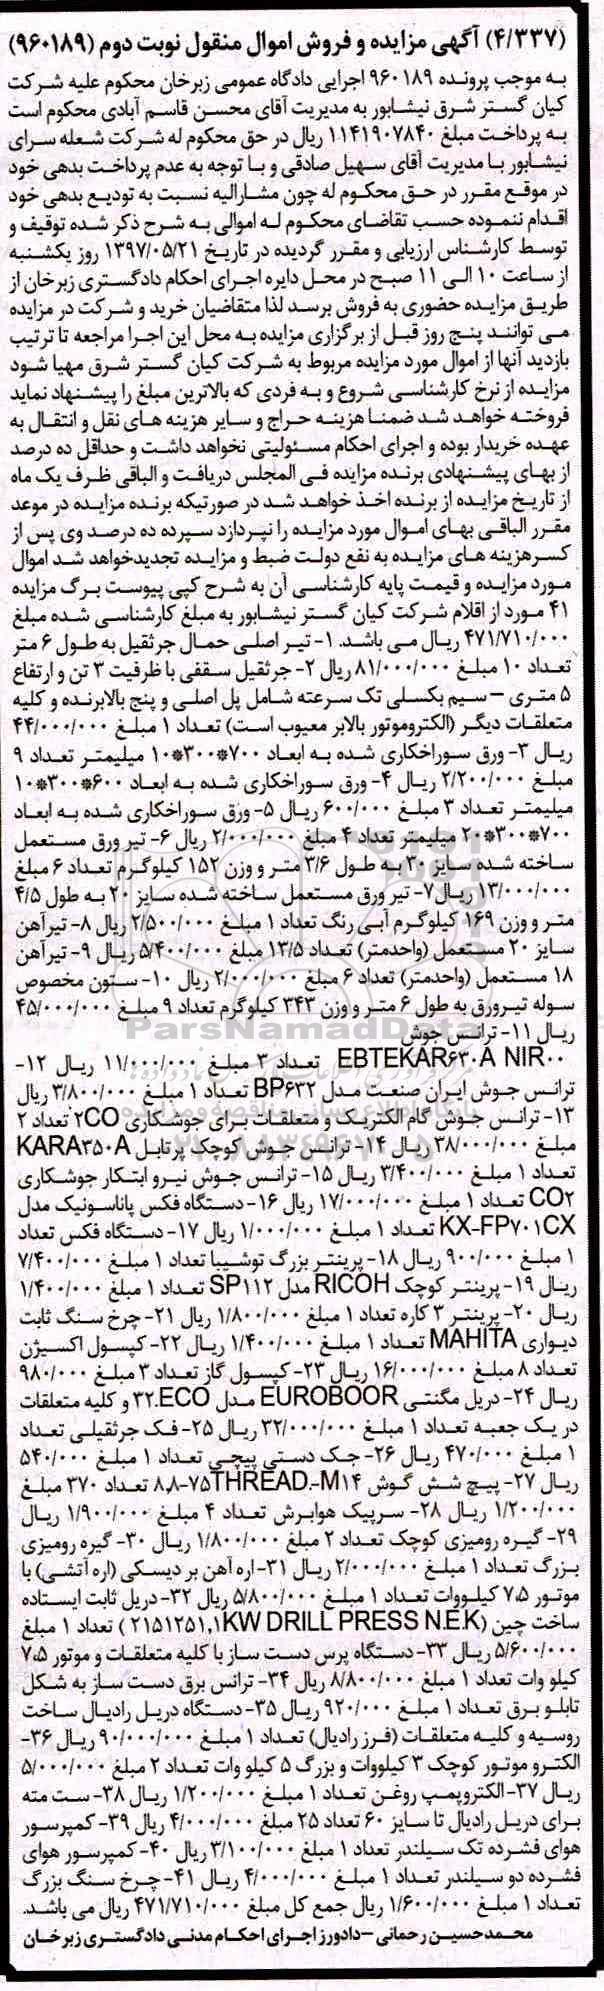 (۴/۳۳۷) آگهی مزایده و فروش اموال منقول نوبت دوم (۹۶۰۱۸۹)
به موجب پرونده ۹۶۰۱۸۹ اجرایی دادگاه عمومی زبرخان محکوم علیه شرکت
کیان گستر شرق نیشابور به مدیریت آقای محسن قاسم آبادی محکوم است
به پرداخت مبلغ ۱۱۴۱۹۰۷۸۴۰ ریال در حق محکوم له شرکت شعله سرای
نیشابور با مدیریت آقای سهیل صادقی و با توجه به عدم پرداخت بدهی خود
در موقع مقرر در حق محکوم له چون مشارالیه نسبت به تودیع بدهی خود
اقدام ننموده حسب تقاضای محکوم له اموالی به شرح ذکر شده توقیف و
توسط کارشناس ارزیابی و مقرر گردیده در تاریخ ۱۳۹۷/۰۵/۲۱ روز یکشنبه
از ساعت ۱۰ الی ۱۱ صبح در محل دایره اجرای احکام دادگستری زبرخان از
طریق مزایده حضوری به فروش برسد لذا متقاضیان خرید و شرکت در مزایده
می توانند پنج روز قبل از برگزاری مزایده به محل این اجرا مراجعه تا ترتیب
بازدید آنها از اموال مورد مزایده مربوط به شرکت کیان گستر شرق مهیا شود
مزایده از نرخ کارشناسی شروع و به فردی که بالاترین مبلغ را پیشنهاد نماید
فروخته خواهد شد ضمنا هزینه حراج و سایر هزینه های نقل و انتقال به
عهده خریدار بوده و اجرای احکام مسئولیتی نخواهد داشت و حداقل ده درصد
از بهای پیشنهادی برنده مزایده فی المجلس دریافت و الباقی ظرف یک ماه
از تاریخ مزایده از برنده اخذ خواهد شد در صورتیکه برنده مزایده در موعد
مقرر الباقی بهای اموال مورد مزایده را نپردازد سپرده ده درصد وی پس از
کسر هزینه های مزایده به نفع دولت ضبط و مزایده تجدیدخواهد شد اموال
مورد مزایده و قیمت پایه کارشناسی آن به شرح کپی پیوست برگ مزایده
۴۱ مورد از اقلام شرکت کیان گستر نیشابور به مبلغ کارشناسی شده مبلغ
۴۷۱/۷۱۰/۰۰۰ ریال می باشد. ۱- تیر اصلی حمال جرثقیل به طول ۶ متر
تعداد ۱۰ مبلغ ۸۱/۰۰۰/۰۰۰ ریال ۲- جرثقیل سقفی با ظرفیت ۳ تن و ارتفاع
۵ متری – سیم بکسلی تک سرعته شامل پل اصلی و پنج بالابرنده و کلیه
متعلقات دیگر (الکتروموتور بالابر معیوب است) تعداد ۱ مبلغ ۴۴/۰۰۰/۰۰۰
ریال ۳- ورق سوراخکاری شده به ابعاد ۷۰۰*۳۰۰*۱۰ میلیمتر تعداد ۹
مبلغ ۲/۲۰۰/۰۰۰ ریال ۴- ورق سوراخکاری شده به ابعاد ۶۰۰*۳۰۰*۱۰
میلیمتر تعداد ۳ مبلغ ۶۰۰/۰۰۰ ریال ۵- ورق سوراخکاری شده به ابعاد
۷۰۰*۳۰۰*۲۰ میلیمتر تعداد ۴ مبلغ ۲/۰۰۰/۰۰۰ ریال ۶- تیر ورق مستعمل
ساخته شده سایز ۳۰ به طول ۳/۶ متر و وزن ۱۵۲ کیلوگرم تعداد ۶ مبلغ
۱۳/۰۰۰/۰۰۰ ریال۷- تیر ورق مستعمل ساخته شده سایز ۲۰ به طول ۴/۵
متر و وزن ۱۶۹ کیلوگرم آبی رنگ تعداد ۱ مبلغ ۲/۵۰۰/۰۰۰ ریال ۸- تیرآهن
سایز ۲۰ مستعمل (واحدمتر) تعداد ۱۳/۵ مبلغ ۵/۴۰۰/۰۰۰ ریال ۹- تیرآهن
۱۸ مستعمل (واحدمتر) تعداد ۶ مبلغ ۲/۰۰۰/۰۰۰ ریال ۱۰- ستون مخصوص
سوله تیرورق به طول ۶ متر و وزن ۳۴۳ کیلوگرم تعداد ۹ مبلغ ۴۵/۰۰۰/۰۰۰
ریال ۱۱- ترانس جوش
EBTEKAR۶۳۰A NIR۰۰ تعداد ۳ مبلغ ۱۱/۰۰۰/۰۰۰ ریال ۱۲-
ترانس جوش ایران صنعت مدل BP۶۳۲ تعداد ۱ مبلغ ۳/۸۰۰/۰۰۰ ریال
۱۳- ترانس جوش گام الکتریک و متعلقات برای جوشکاری ۲CO تعداد ۲
مبلغ ۳۸/۰۰۰/۰۰۰ ریال ۱۴- ترانس جوش کوچک پرتابل KARA۳۵۰A
تعداد ۱ مبلغ ۳/۴۰۰/۰۰۰ ریال ۱۵- ترانس جوش نیرو ابتکار جوشکاری
CO۲ تعداد ۱ مبلغ ۱۷/۰۰۰/۰۰۰ ریال ۱۶- دستگاه فکس پاناسونیک مدل
KX-FP۷۰۱CX تعداد ۱ مبلغ ۱/۰۰۰/۰۰۰ ریال ۱۷- دستگاه فکس تعداد
۱ مبلغ ۹۰۰/۰۰۰ ریال ۱۸- پرینتر بزرگ توشیبا تعداد ۱ مبلغ ۷/۴۰۰/۰۰۰
ریال ۱۹- پرینتر کوچک RICOH مدل SP۱۱۲ تعداد ۱ مبلغ ۱/۴۰۰/۰۰۰
ریال ۲۰- پرینتر ۳ کاره تعداد ۱ مبلغ ۱/۸۰۰/۰۰۰ ریال ۲۱- چرخ سنگ ثابت
دیواری MAHITA تعداد ۱ مبلغ ۱/۴۰۰/۰۰۰ ریال ۲۲- کپسول اکسیژن
تعداد ۸ مبلغ ۱۶/۰۰۰/۰۰۰ ریال ۲۳- کپسول گاز تعداد ۳ مبلغ ۹۸۰/۰۰۰
ریال ۲۴- دریل مگنتی EUROBOOR مدل ۳۲.ECO و کلیه متعلقات
در یک جعبه تعداد ۱ مبلغ ۳۲/۰۰۰/۰۰۰ ریال ۲۵- فک جرثقیلی تعداد
۱ مبلغ ۴۷۰/۰۰۰ ریال ۲۶- جک دستی پیچی تعداد ۱ مبلغ ۵۴۰/۰۰۰
ریال ۲۷- پیچ شش گوش ۸,۸-۷۵THREAD.-M۱۴ تعداد ۳۷۰ مبلغ
۱/۲۰۰/۰۰۰ ریال ۲۸- سرپیک هوابرش تعداد ۴ مبلغ ۱/۹۰۰/۰۰۰ ریال
۲۹- گیره رومیزی کوچک تعداد ۲ مبلغ ۱/۸۰۰/۰۰۰ ریال ۳۰- گیره رومیزی
بزرگ تعداد ۱ مبلغ ۲/۰۰۰/۰۰۰ ریال ۳۱- اره آهن بر دیسکی (اره آتشی) با
موتور ۷,۵ کیلووات تعداد ۱ مبلغ ۵/۸۰۰/۰۰۰ ریال ۳۲- دریل ثابت ایستاده
ساخت چین (۲۱۵۱۲۵۱,۱KW DRILL PRESS N.E.K) تعداد ۱ مبلغ
۵/۶۰۰/۰۰۰ ریال ۳۳- دستگاه پرس دست ساز با کلیه متعلقات و موتور ۷,۵
کیلو وات تعداد ۱ مبلغ ۸/۸۰۰/۰۰۰ ریال ۳۴- ترانس برق دست ساز به شکل
تابلو برق تعداد ۱ مبلغ ۹۲۰/۰۰۰ ریال ۳۵- دستگاه دریل رادیال ساخت
روسیه و کلیه متعلقات (فرز رادیال) تعداد ۱ مبلغ ۹۰/۰۰۰/۰۰۰ ریال ۳۶-
الکترو موتور کوچک ۳ کیلووات و بزرگ ۵ کیلو وات تعداد ۲ مبلغ ۵/۰۰۰/۰۰۰
ریال ۳۷- الکتروپمپ روغن تعداد ۱ مبلغ ۱/۲۰۰/۰۰۰ ریال ۳۸- ست مته
برای دریل رادیال تا سایز ۶۰ تعداد ۲۵ مبلغ ۴/۰۰۰/۰۰۰ ریال ۳۹- کمپرسور
هوای فشرده تک سیلندر تعداد ۱ مبلغ ۳/۱۰۰/۰۰۰ ریال ۴۰- کمپرسور هوای
فشرده دو سیلندر تعداد ۱ مبلغ ۴/۰۰۰/۰۰۰ ریال ۴۱- چرخ سنگ بزرگ
تعداد ۱ مبلغ ۱/۶۰۰/۰۰۰ ریال جمع کل مبلغ ۴۷۱/۷۱۰/۰۰۰ ریال می باشد.
محمدحسین رحمانی – دادورز اجرای احکام مدنی دادگستری زبرخان
ParsNamadData